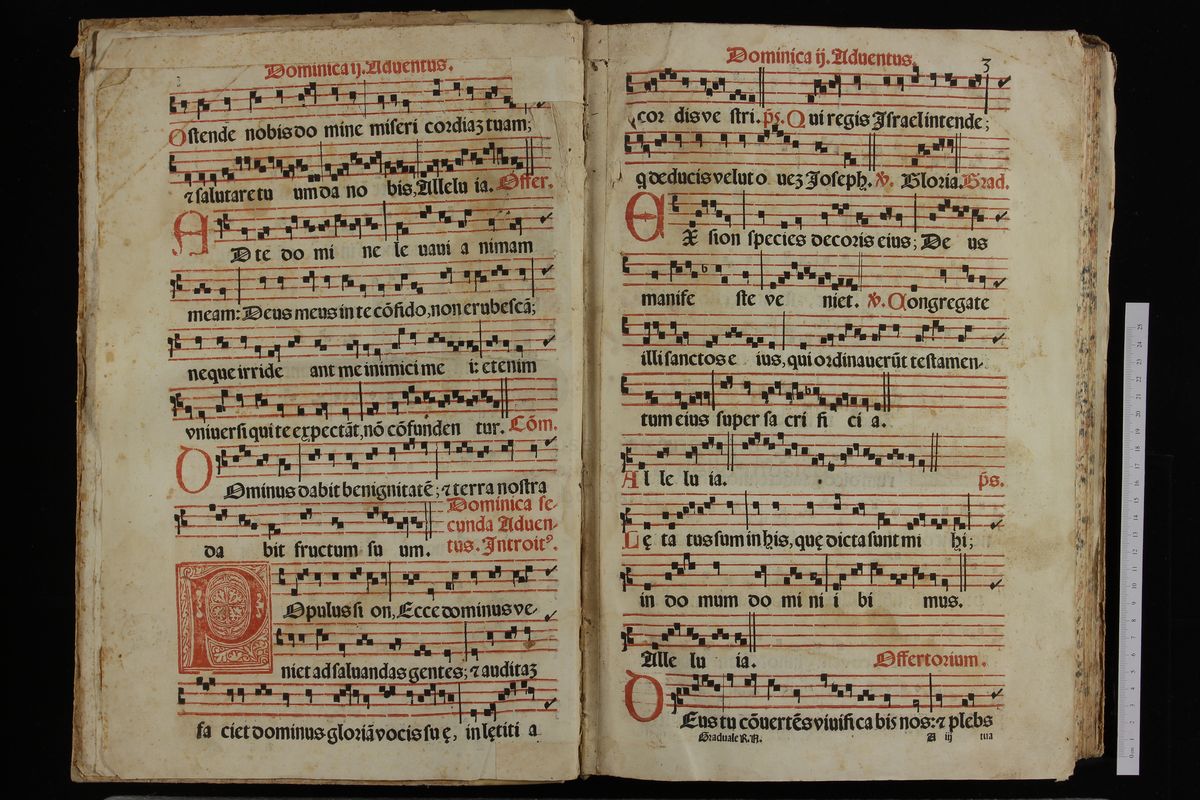 Dominica ij. Aduentus.
Ostende nobis do mine miseri cordiaʒ tuam;
⁊ salutare tu um da no bis, Allelu ia. Offer.
AD te do mi ne le uaui a nimam
meam: Deus meus in te cõfido, non erubescã;
neque irride ant me inimici me i: etenim
vniuersi qui te expectãt, nõ cõfunden tur. Cõm.
DOminus dabit benignitatẽ; ⁊ terra nostra
da bit fructum su um.
Dominica se-
cunda Aduen-
tus. Introitꝰ.
POpulus si on, Ecce dominus ve-
niet ad saluandas gentes; ⁊ auditaʒ
fa ciet dominus gloriã vocis su ę, in lętiti a
Dominica ij. Aduentus.
3
cor dis ve stri. p̃s. Qui regis Israel intende;
q deducis velut o ueʒ Joseph. ℣. Gloria. Grad.
EX sion species decoris eius; De us
manife ste ve niet. ℣. Congregate
illi sanctos e ius, qui ordinauerũt testamen-
tum eius super sa cri fi ci a.
Al le lu ia. p̃s.
Lę ta tus sum in his, quę dicta sunt mi hi;
in do mum do mi ni i bi mus.
Alle lu ia. Offertorium.
DEus tu cõuertẽs viuifica bis nos: ⁊ plebs
Graduale R.A. A iij tua